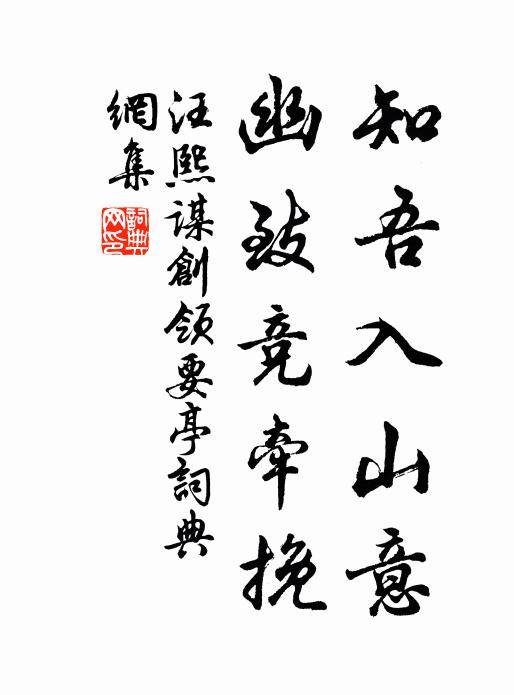 知吾入山意
幽致竞牵挽
汪熙謀創領要亭詞典
網集
詞典
网印